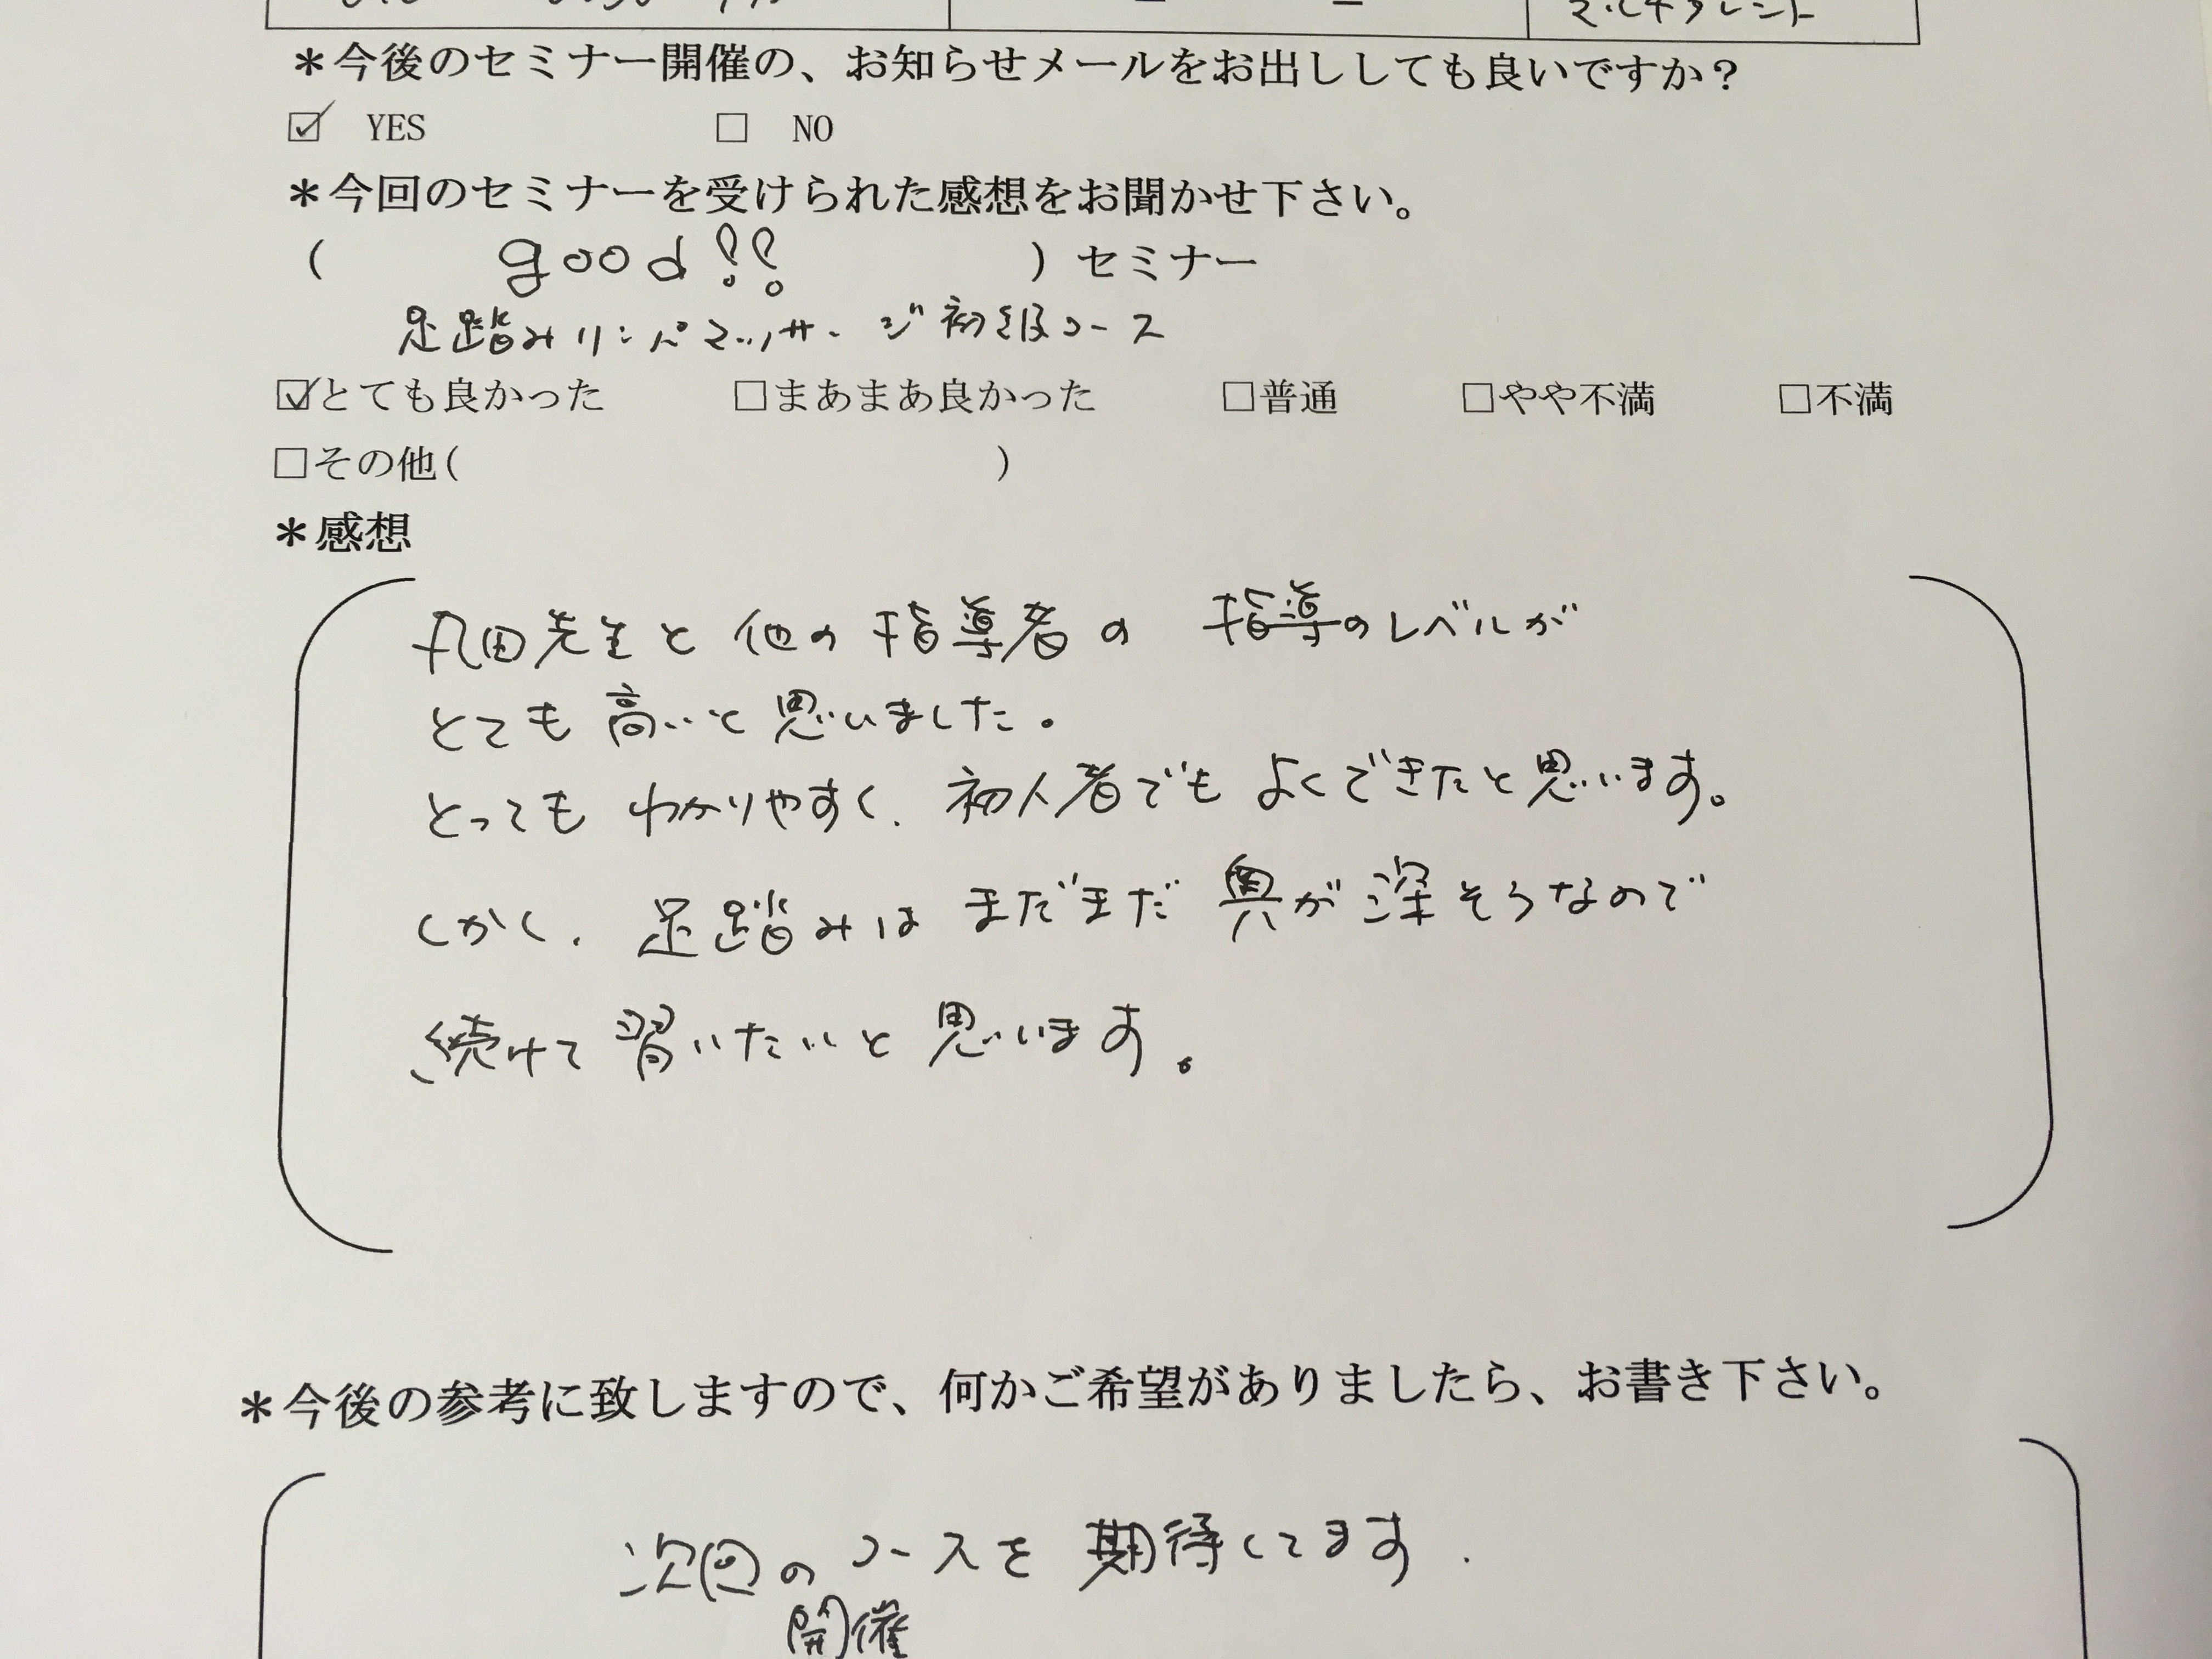 マルチタレント
＊今後のセミナー開催の、お知らせメールをお出ししても良いですか？
☑ YES □ NO
＊今回のセミナーを受けられた感想をお聞かせ下さい。
( good!! ) セミナー
足踏みリンパマッサージ初級コース
☑とても良かった □まあまあ良かった □普通 □やや不満 □不満
□その他( )
＊感想
丹田先生と他の指導者の 指導のレベルが
とても高いと思いました。
とっても わかりやすく、初人者でも よくできたと思います。
しかし、足踏みは まだまだ 奥が深そうなので
続けて習いたいと思います。
＊今後の参考に致しますので、何かご希望がありましたら、お書き下さい。
次回の コースを 期待してます.
開催